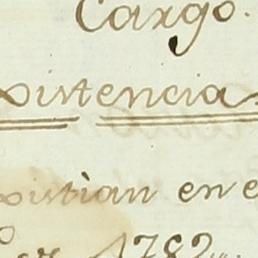 Cargo.
xistencia
xistian en e
1782